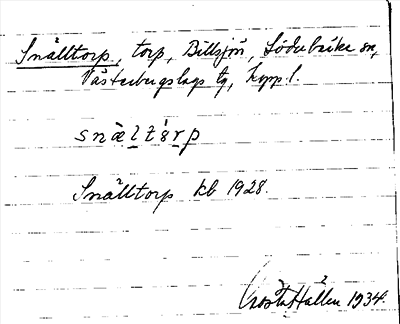 Snålltorp, torp, Billsjön, Söderbärke sn,
Västerbergslags tg, Kopp. l.
snå̀l̲tɜ́r̲p
Snålltorp kb 1928.
Gösta Hallen 1934.